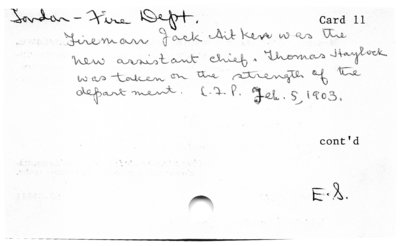 London - Fire Dept.
Card 11
Fireman Jack Aitken was the
new assistant chief. Thomas Haylock
was taken on the strength of the
department. L.F.P. Feb. 5, 1903.
cont'd
E.S.